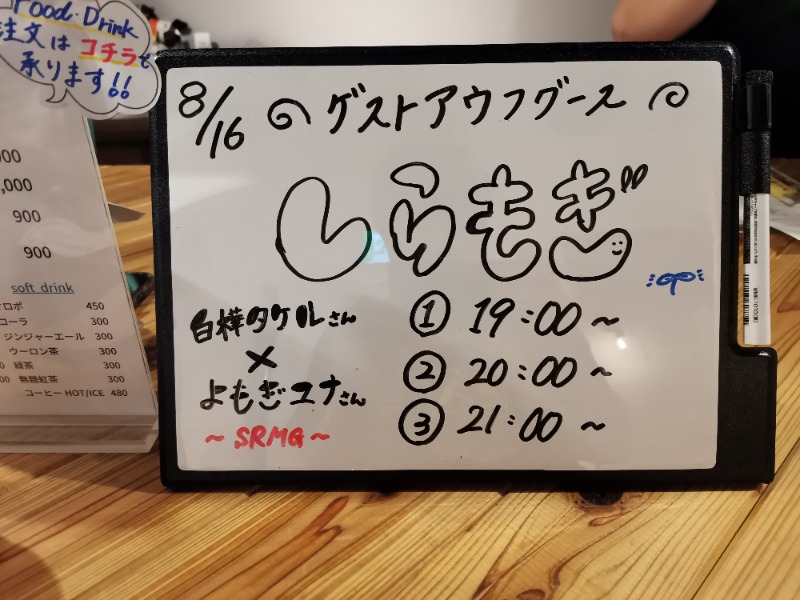 Food・Drink
注文は コチラで
承ります!!
000
,000
900
900
soft drink
450
コーラ 300
ジンジャーエール 300
ウーロン茶 300
緑茶 300
無糖紅茶 300
コーヒー HOT/ICE 480
8/16 ゲストアウフグース
しらもぎ
白樺タケルさん
×
よもぎユナさん
~ SRMG ~
① 19:00 ~
② 20:00 ~
③ 21:00 ~